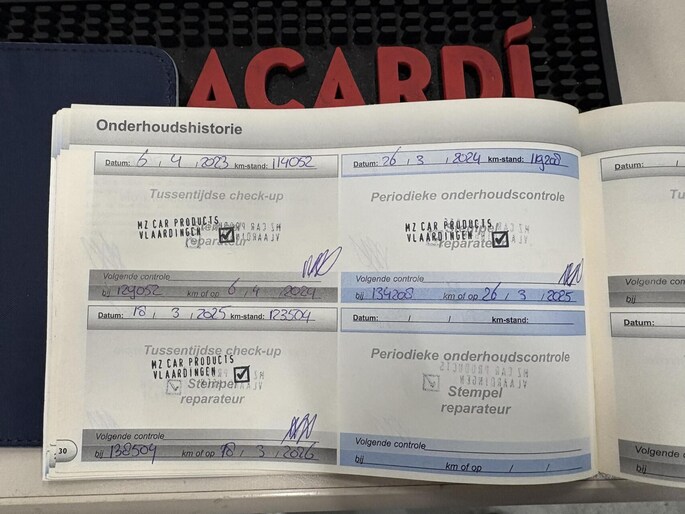 ACARDÍ
Onderhoudshistorie
Datum: 6 , 4 , 2023 km-stand: 114052
Tussentijdse check-up
MZ CAR PRODUCTS
VLAARDINGEN
Stempel
reparateur
Volgende controle
bij 129052 km of op 6 , 4 , 2024
Datum: 26 , 3 , 2024 km-stand: 119208
Periodieke onderhoudscontrole
MZ CAR PRODUCTS
VLAARDINGEN
Stempel
reparateur
Volgende controle
bij 134208 km of op 26 , 3 , 2025
Datum: 18 , 3 , 2025 km-stand: 123504
Tussentijdse check-up
MZ CAR PRODUCTS
VLAARDINGEN
Stempel
reparateur
Volgende controle
bij 138504 km of op 18 , 3 , 2026
Datum: / / km-stand:
Periodieke onderhoudscontrole
Stempel
reparateur
Volgende controle
bij km of op / /
30
Datum:
Volgende con
bij
Datum:
Volgende
bij